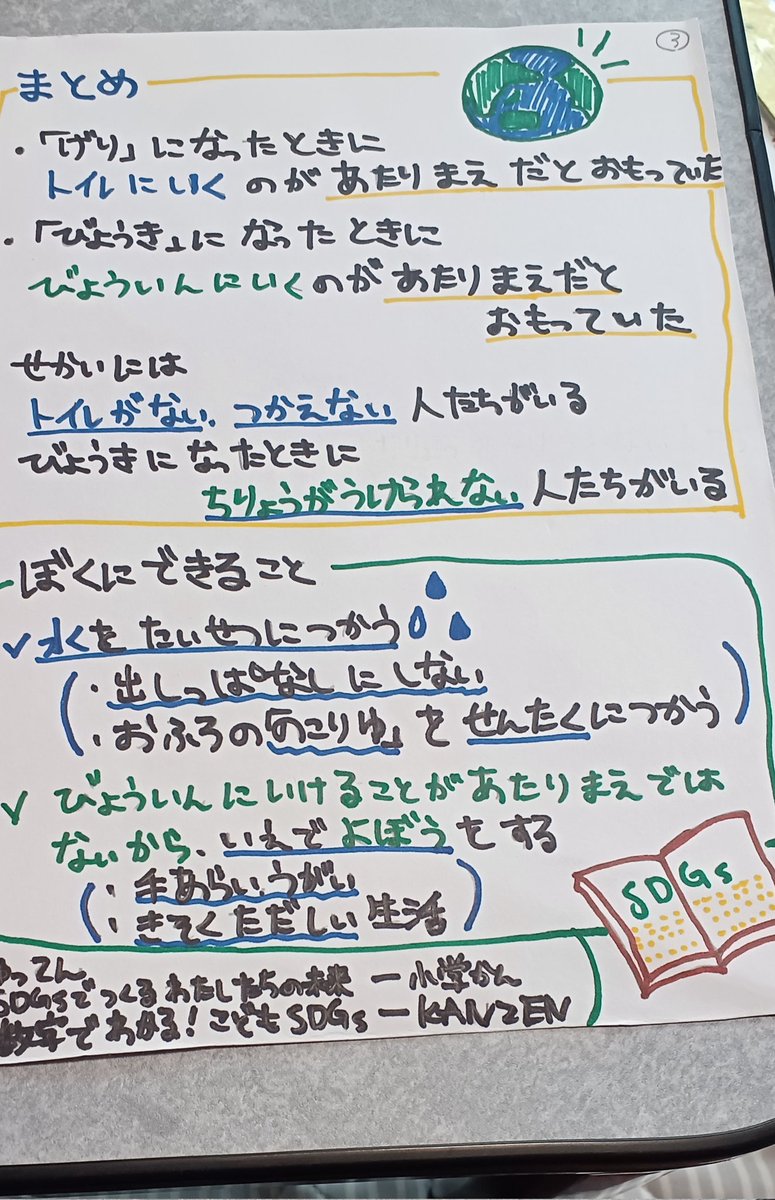 ③
まとめ
・「げり」になったときに
トイレにいくのがあたりまえだとおもっていた
・「びょうき」になったときに
びょういんにいくのがあたりまえだと
おもっていた
せかいには
トイレがない、つかえない人たちがいる
びょうきになったときに
ちりょうがうけられない人たちがいる
ぼくにできること
✓水をたいせつにつかう
(・出しっぱなしにしない
・おふろの「のこりゆ」をせんたくにつかう)
✓びょういんにいけることがあたりまえでは
ないから、いえでよぼうをする
(・手あらいうがい
・きそくただしい生活)
SDGs
SDGsでつくるわたしたちの未来 ー小学かん
数字でわかる!こどもSDGs ーKANZEN